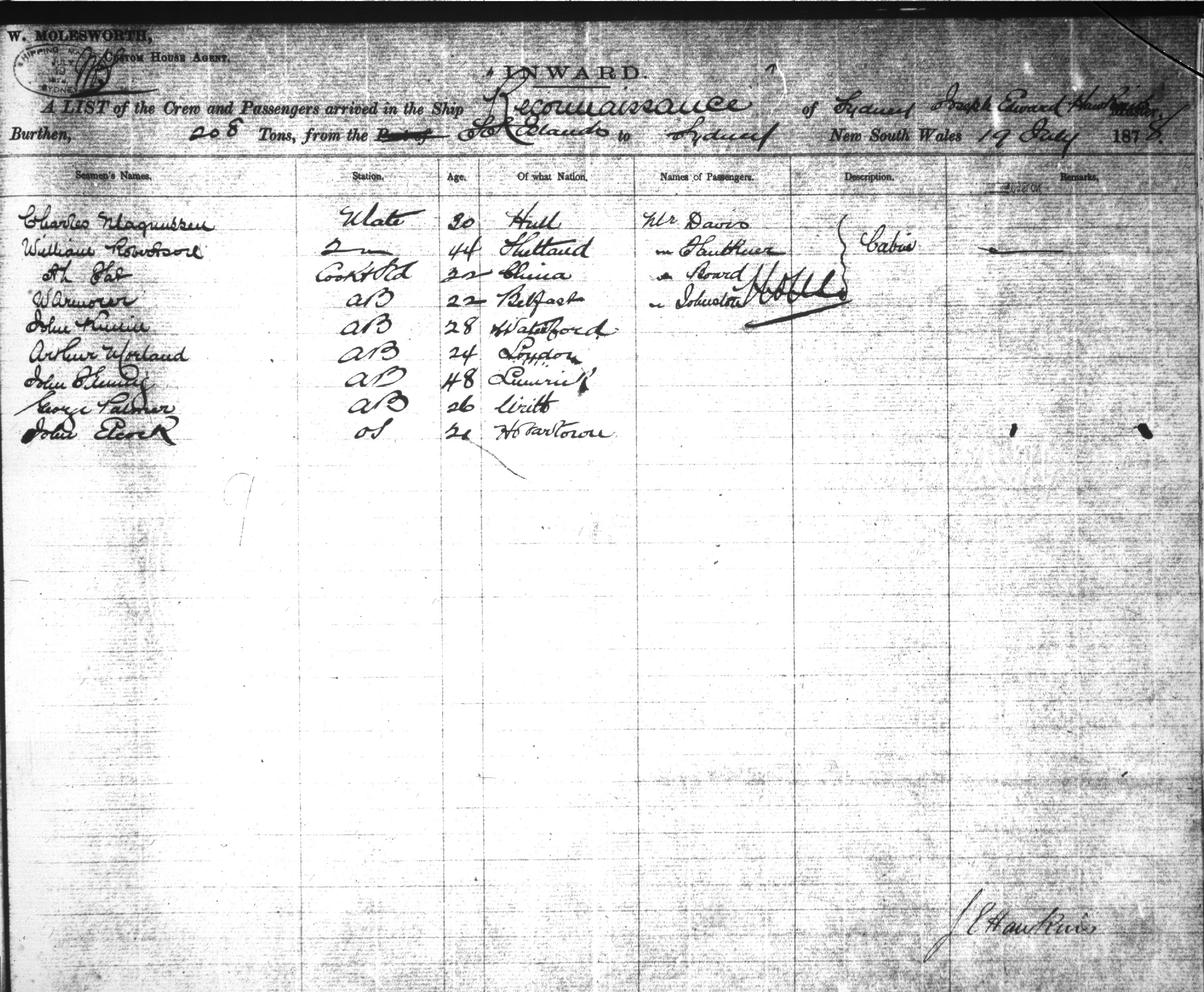 W. MOLESWORTH,
Custom House Agent.
SHIPPING
JULY
SYDNEY
INWARD.
A LIST of the Crew and Passengers arrived in the Ship Reconnaissance of Sydney Joseph Edward Hawkins Master,
Burthen, 208 Tons, from the Port of Islands to Sydney New South Wales 19 July 1878
Seamen's Names. Station. Age. Of what Nation. Names of Passengers. Description. Remarks.
Charles Magnussen Mate 30 Hull Mr Davis
William Robertson 2 " 44 Shetland " Faulkner Cabin
Ah Fat Cook & Std 22 China " Board
Warmorer AB 22 Belfast " Johnston
John AB 28 Waterford
Arthur Morland AB 24 London
John Fleming AB 48 Limerick
George Palmer AB 26
John Elcock OS 20 Hobartown
J E Hawkins